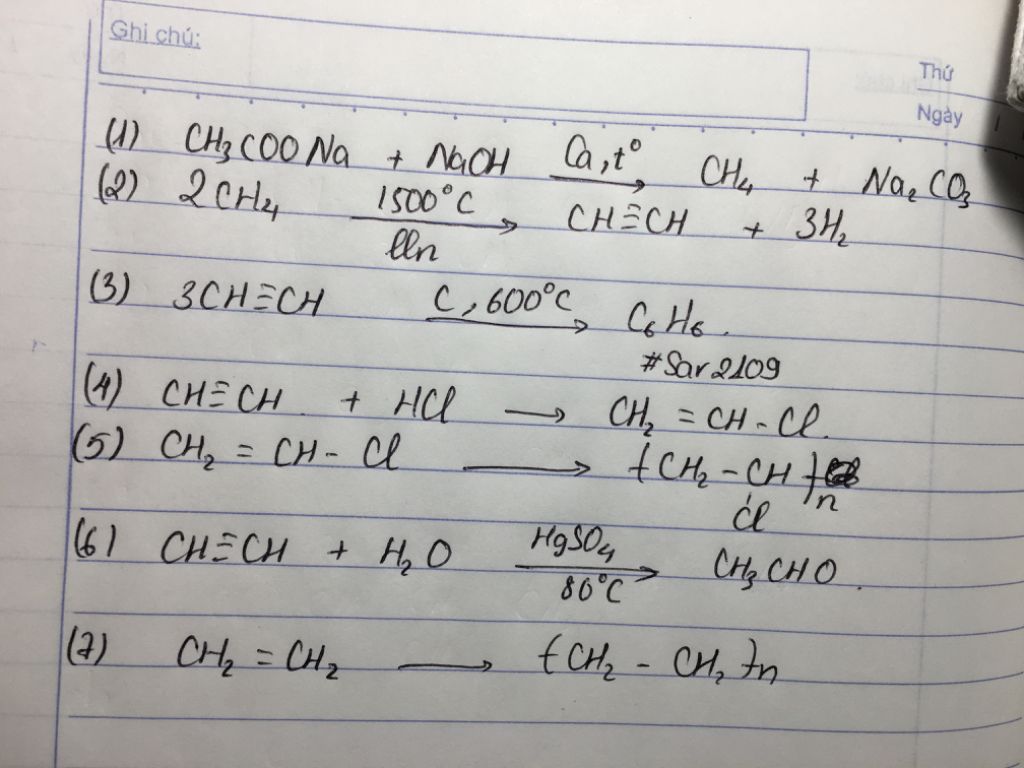 Ghi chú:
Thứ
Ngày
(1) CH₃COONa + NaOH Ca,t° → CH₄ + Na₂CO₃
(2) 2CH₄ 1500°C → lln CH≡CH + 3H₂
(3) 3CH≡CH C, 600°C → C₆H₆.
#Sar2109
(4) CH≡CH + HCl → CH₂ = CH - Cl.
(5) CH₂ = CH - Cl → (CH₂ - CH)n
Cl
(6) CH≡CH + H₂O HgSO₄ → 80°C CH₃CHO.
(7) CH₂ = CH₂ → (CH₂ - CH₂)n